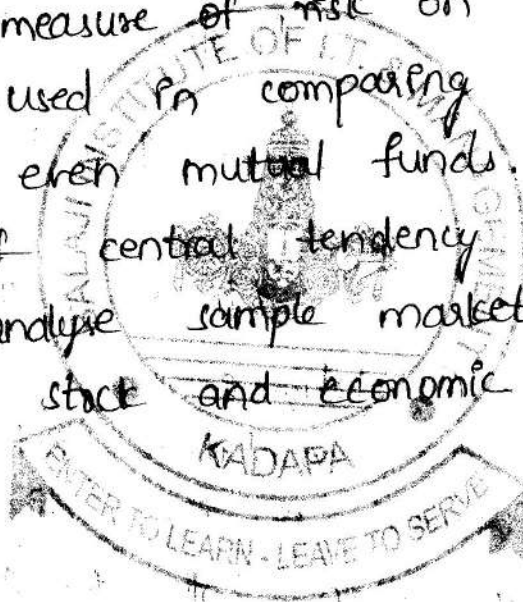 measure of risk on
used in comparing
even mutual funds.
central tendency
analyse sample market
stock and economic
INSTITUTE OF I.T &
KADAPA
ENTER TO LEARN - LEAVE TO SERVE